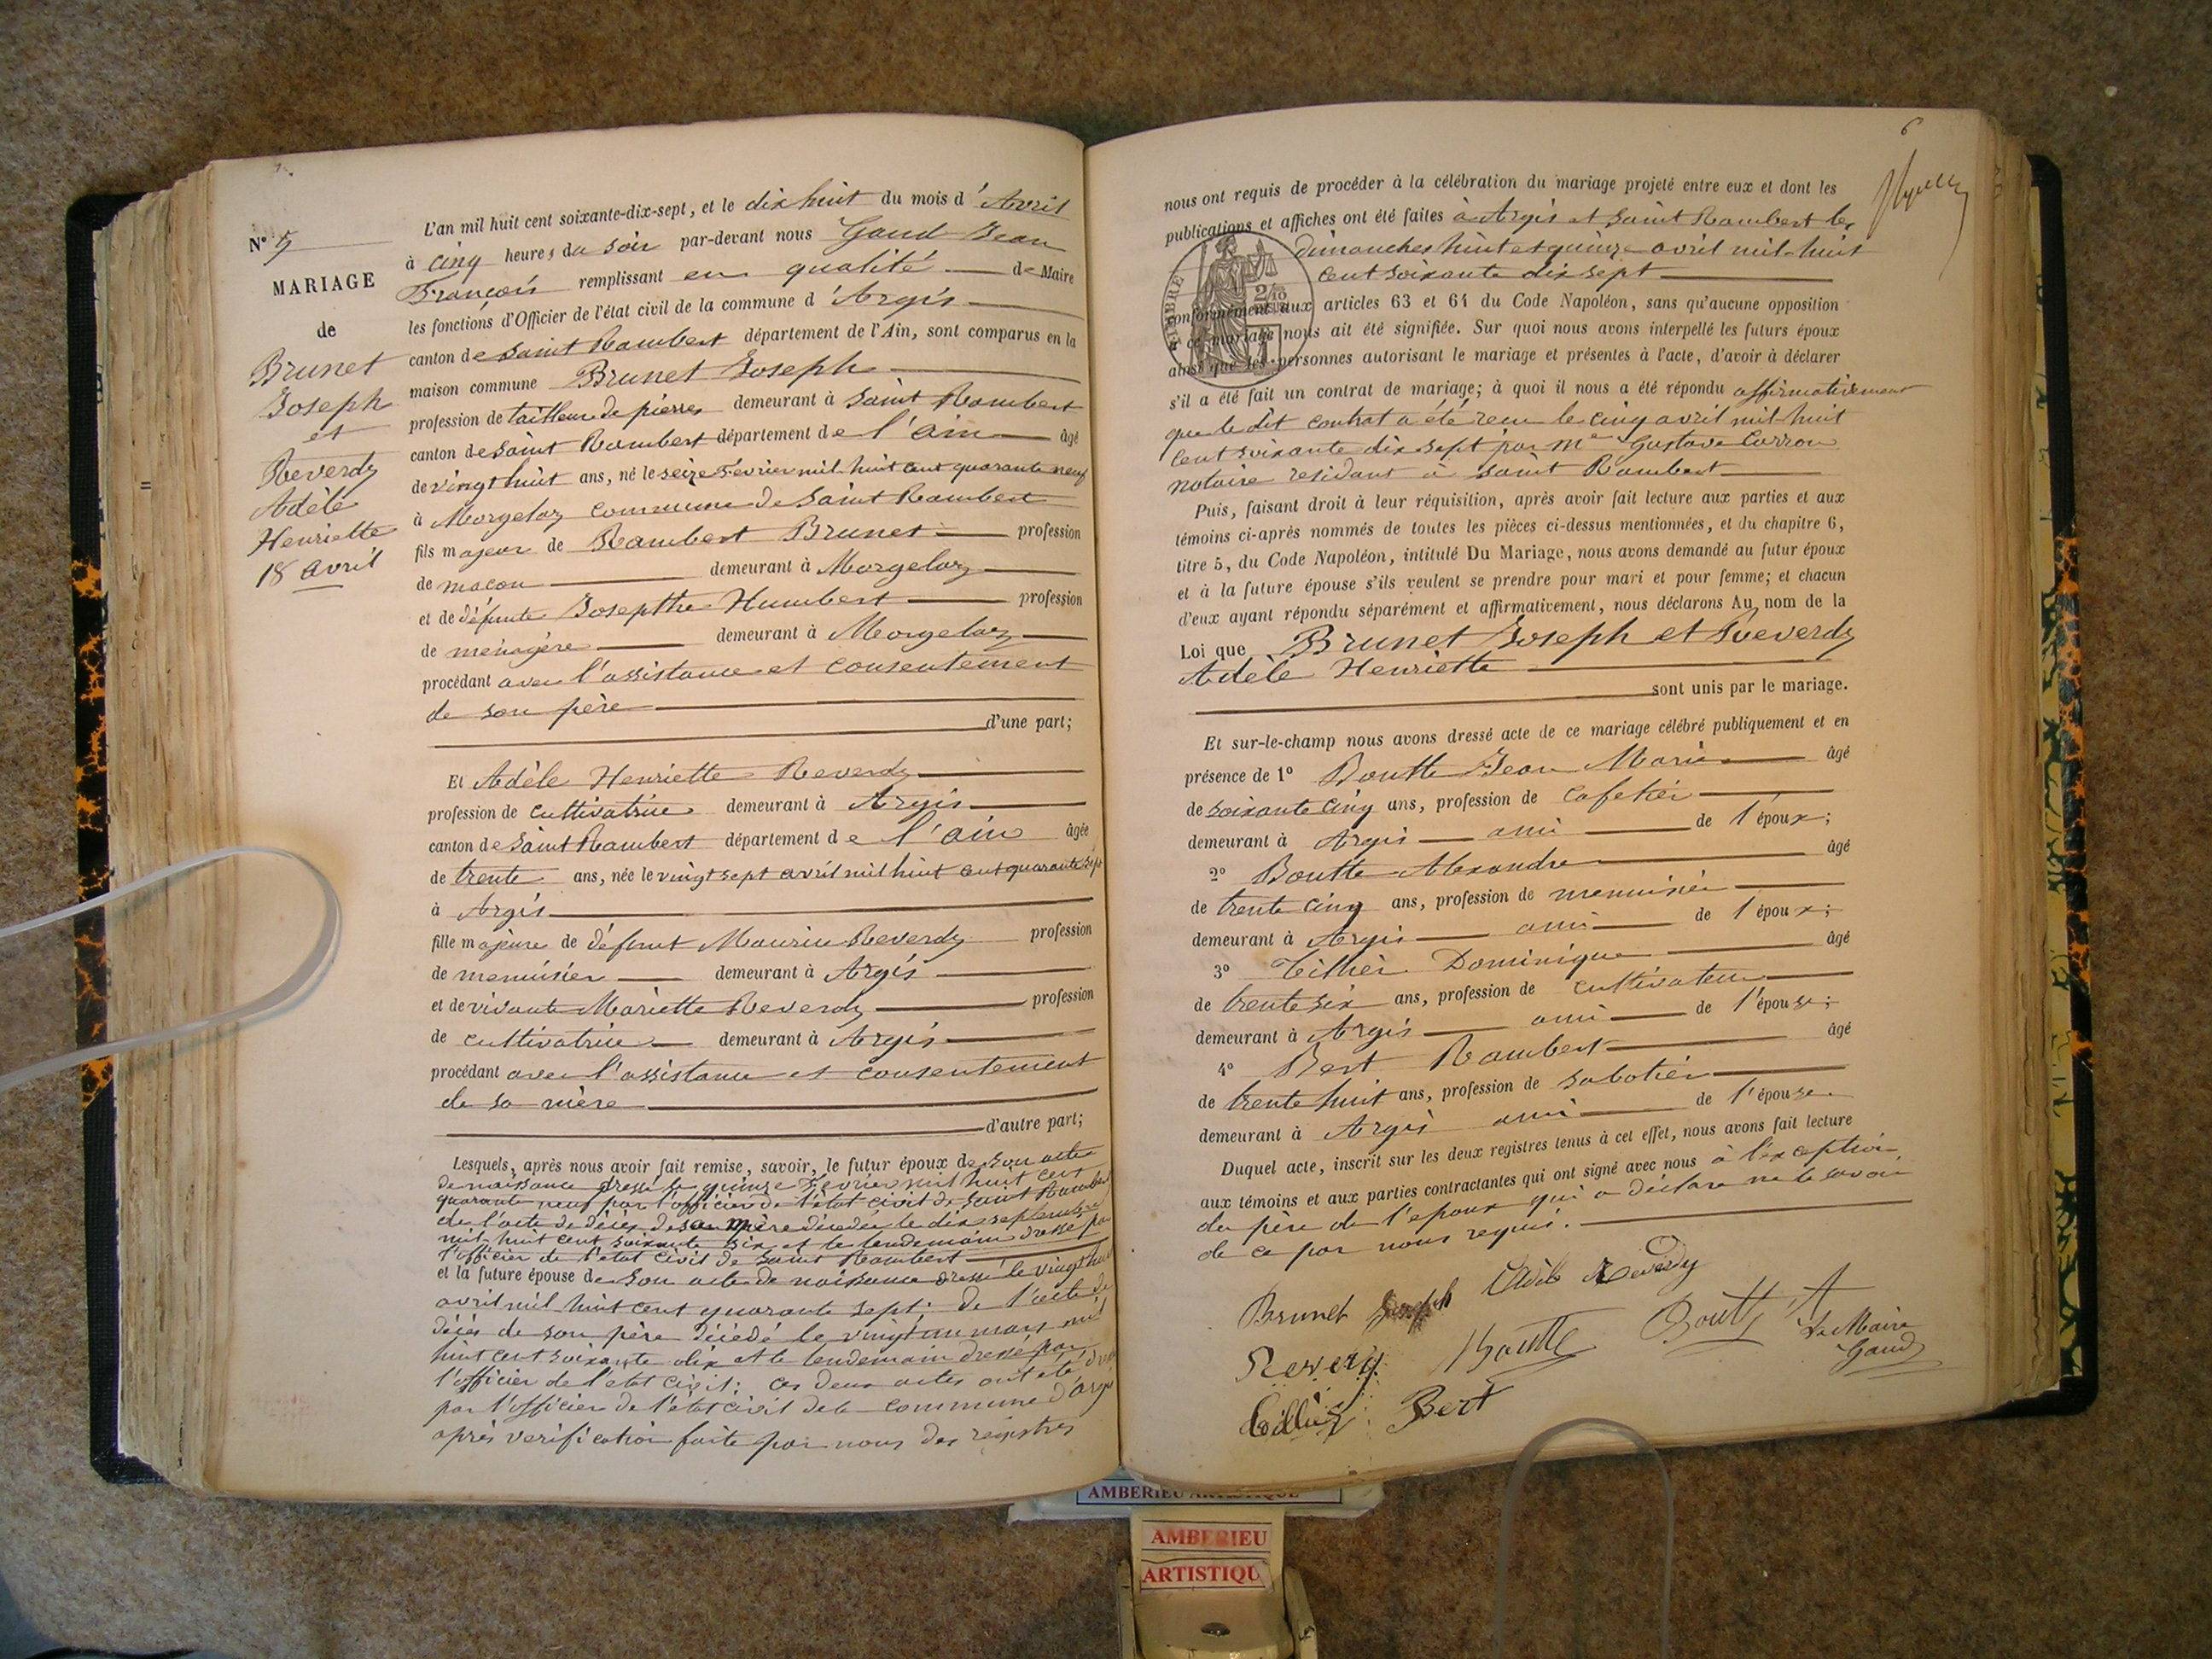 N° 5
MARIAGE
de
Brunet
Joseph
et
Reverdy
Adèle
Henriette
18 avril
L'an mil huit cent soixante-dix-sept, et le dix huit du mois d'Avril
à cinq heures du soir par-devant nous Gaud Jean
François remplissant en qualité de Maire
les fonctions d'Officier de l'état civil de la commune d'Argis
canton de Saint Rambert département de l'Ain, sont comparus en la
maison commune Brunet Joseph
profession de tailleur de pierres demeurant à Saint Rambert
canton de Saint Rambert département de l'Ain âgé
de vingt huit ans, né le seize Février mil huit cent quarante neuf
à Morgelaz commune de Saint Rambert
fils majeur de Rambert Brunet profession
de maçon demeurant à Morgelaz
et de défunte Josepthe Humbert profession
de ménagère demeurant à Morgelaz
procédant avec l'assistance et consentement
de son père
d'une part;
Et Adèle Henriette Reverdy
profession de cultivatrice demeurant à Argis
canton de Saint Rambert département de l'ain âgée
de trente ans, née le vingt sept avril mil huit cent quarante sept
à Argis
fille majeure de défunt Maurice Reverdy profession
de menuisier demeurant à Argis
et de vivante Mariette Reverdy profession
de cultivatrice demeurant à Argis
procédant avec l'assistance et consentement
de sa mère
d'autre part;
Lesquels, après nous avoir fait remise, savoir, le futur époux de son acte
de naissance dressé le quinze Février mil huit cent
quarante neuf par l'officier de l'état civil de Saint Rambert
de l'acte de décès de sa mère décédée le dix septembre
mil huit cent soixante six et le lendemain dressé par
l'officier de l'état civil de Saint Rambert
et la future épouse de son acte de naissance dressé le vingt huit
avril mil huit cent quarante sept; de l'acte de
décès de son père décédé le vingt un mars mil
huit cent soixante dix et le lendemain dressé par
l'officier de l'état civil; ces deux actes ont été
par l'officier de l'état civil de la commune d'Argis
après verification faite par nous des registres
6
nous ont requis de procéder à la célébration du mariage projeté entre eux et dont les
publications et affiches ont été faites à Argis et Saint Rambert les
dimanches huit et quinze avril mil huit
cent soixante dix sept
TIMBRE
2/10
conformément aux articles 63 et 64 du Code Napoléon, sans qu'aucune opposition
à ce mariage nous ait été signifiée. Sur quoi nous avons interpellé les futurs époux
ainsi que les personnes autorisant le mariage et présentes à l'acte, d'avoir à déclarer
s'il a été fait un contrat de mariage; à quoi il nous a été répondu affirmativement
que le dit contrat a été reçu le cinq avril mil huit
cent soixante dix sept par Me Gustave Corron
notaire residant à Saint Rambert
Puis, faisant droit à leur réquisition, après avoir fait lecture aux parties et aux
témoins ci-après nommés de toutes les pièces ci-dessus mentionnées, et du chapitre 6,
titre 5, du Code Napoléon, intitulé Du Mariage, nous avons demandé au futur époux
et à la future épouse s'ils veulent se prendre pour mari et pour femme; et chacun
d'eux ayant répondu séparément et affirmativement, nous déclarons Au nom de la
Loi que Brunet Joseph et Reverdy
Adèle Henriette
sont unis par le mariage.
Et sur-le-champ nous avons dressé acte de ce mariage célébré publiquement et en
présence de 1° Boutte Jean Marie âgé
de soixante cinq ans, profession de cafetier
demeurant à Argis ami de l'époux;
2° Boutte Alexandre âgé
de trente cinq ans, profession de menuisier
demeurant à Argis ami de l'époux;
3° Tillier Dominique âgé
de trente six ans, profession de cultivateur
demeurant à Argis ami de l'épouse;
4° Bert Rambert âgé
de trente huit ans, profession de sabotier
demeurant à Argis ami de l'épouse.
Duquel acte, inscrit sur les deux registres tenus à cet effet, nous avons fait lecture
aux témoins et aux parties contractantes qui ont signé avec nous à l'exception
du père de l'epoux qui a déclaré ne le savoir
de ce par nous requis.
Brunet Joseph Adèle Reverdy
Reverdy Boutte Boutte A Le Maire
Gaud
Tillier Bert
AMBERIEU ARTISTIQUE
AMBERIEU
ARTISTIQU